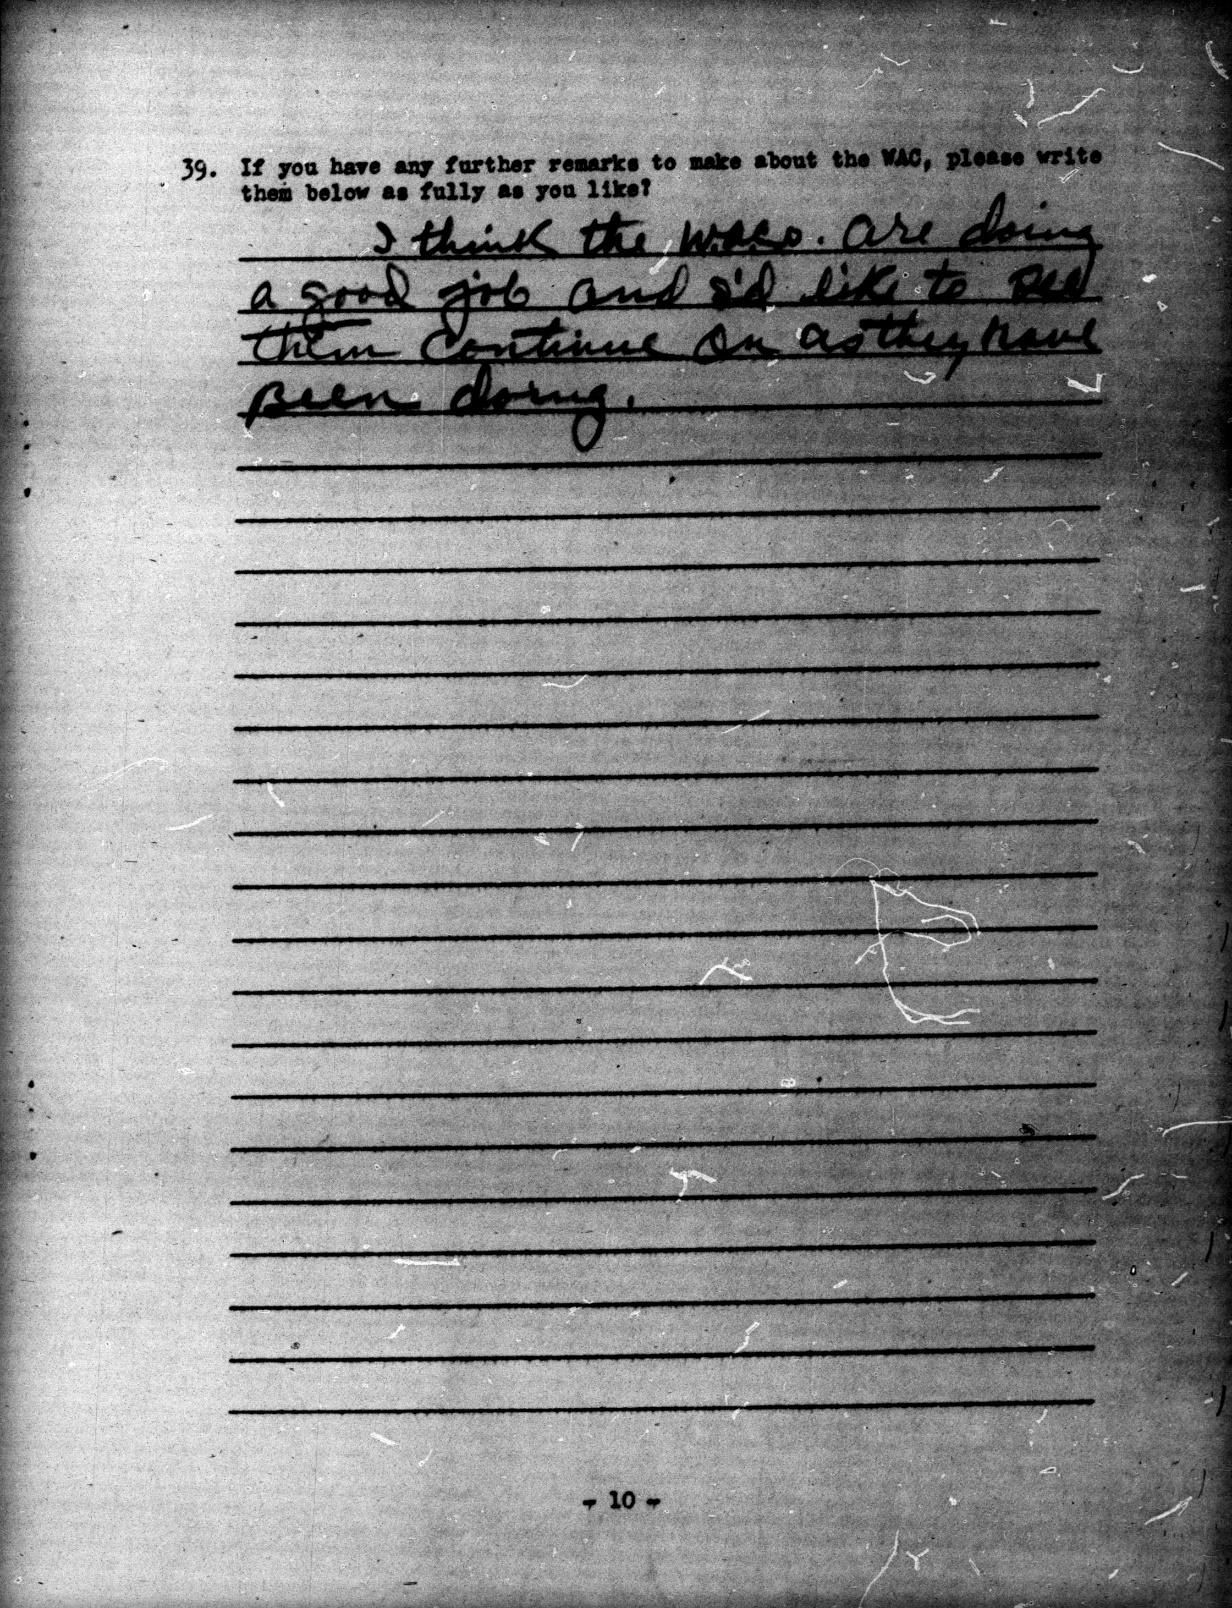 39. If you have any further remarks to make about the WAC, please write
them below as fully as you like?
I think the Wacs. are doing
a good job and I'd like to see
them continue on as they have
been doing.
- 10 -